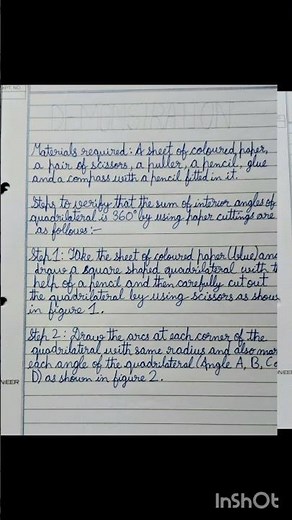 DEMONSTRATION
Materials required: A sheet of coloured paper,
a pair of scissors, a puller, a pencil, glue
and a compass with a pencil fitted in it.
Steps to verify that the sum of interior angles of
quadrilateral is 360° by using paper cuttings are
as follows:-
Step 1: Take the sheet of coloured paper (blue) and
draw a square shaped quadrilateral with t
help of a pencil and then carefully cut out
the quadrilateral by using scissors as shown
in figure 1.
Step 2: Draw the arcs at each corner of the
quadrilateral with same radius and also mar
each angle of the quadrilateral (Angle A, B, C
D) as shown in figure 2.
NEER
InShOt